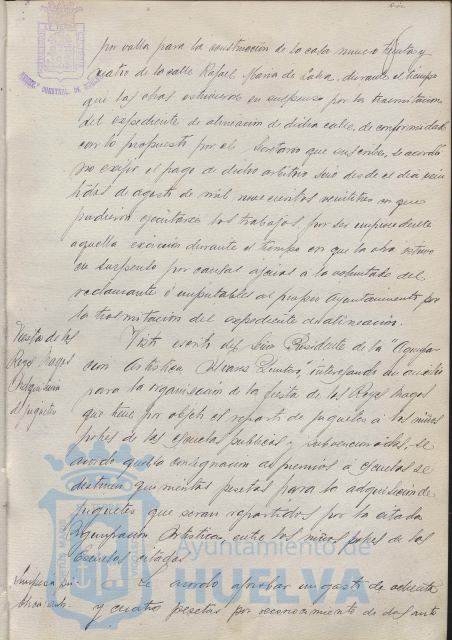 por valla para la construcción de la casa número treinta y
cuatro de la calle Rafael María de Labra, durante el tiempo
que las obras estuvieron en suspenso por la tramitacion
del expediente de alineación de dicha calle, de conformidad
con lo propuesto por el Secretario que suscribe, se acordó
no exijir el pago de dicho arbitrio sino desde el día
de agosto de mil nuevecientos veintitres en que
pudieron ejecutarse los trabajos, por ser improcedente
aquella exacción durante el tiempo en que la obra estuvo
en suspenso por causas ajenas á la voluntad del
reclamante é imputables al propio Ayuntamiento por
la tramitación del expediente de alineación.
Fiesta de los
Reyes Magos
Adquisición
de juguetes
Visto escrito del Sr. Presidente de la "Agrupa-
ción Artística Alvarez Quintero, interesando un auxilio
para la organización de la fiesta de los Reyes Magos
que tiene por objeto el reparto de juguetes á los niños
pobres de las escuelas públicas y subvencionadas, se
acordó que la consignación de premios á escuelas se
destinen quinientas pesetas para la adquisición de
juguetes que serán repartidos por la citada
Agrupación Artística entre los niños pobres de las
Escuelas citadas
se acordó aprobar un gasto de ochenta
y cuatro pesetas por reconocimiento de dos
Ayuntamiento de
HUELVA